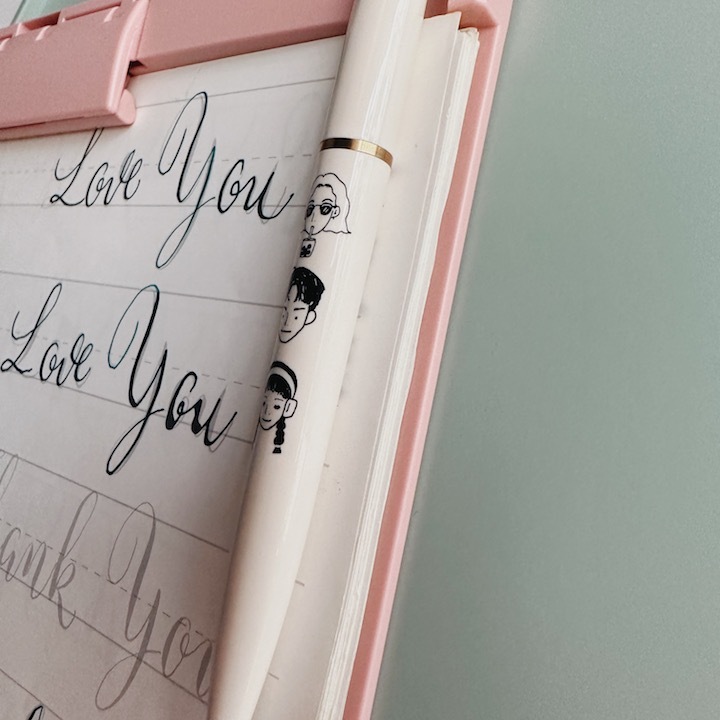 Love You
Love You
Thank You